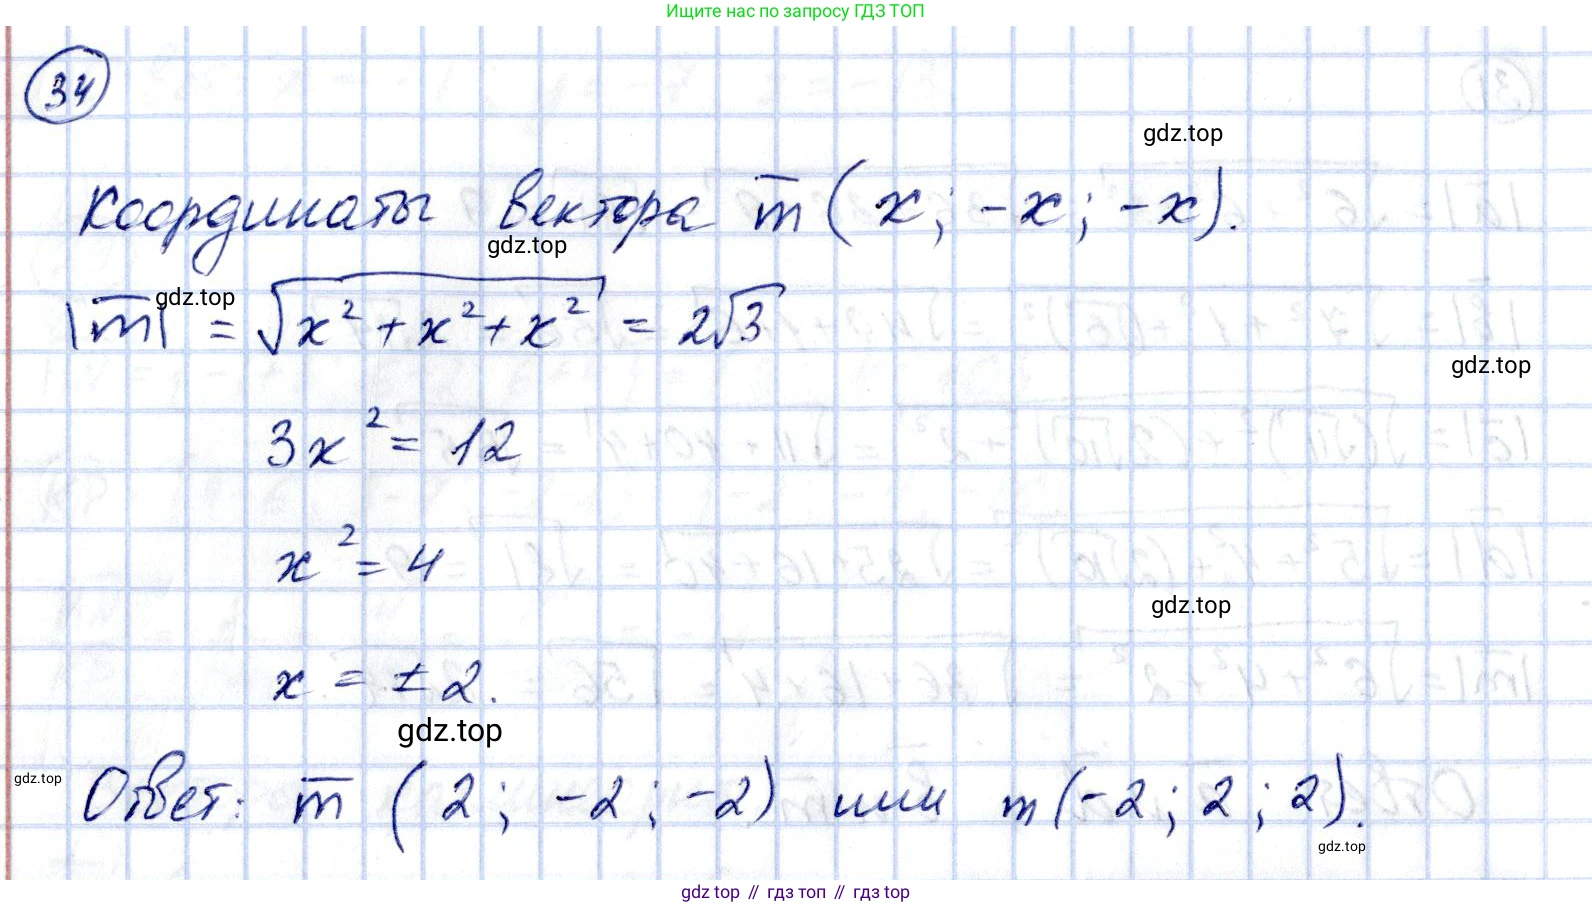 Ищите нас по запросу ГДЗ ТОП
34
gdz.top
Координаты вектора m̅ (x; -x; -x).
gdz.top
gdz.top
|m̅| = √(x² + x² + x²) = 2√3
gdz.top
3x² = 12
x² = 4
gdz.top
x = ± 2.
gdz.top
gdz.top
Ответ: m̅ (2; -2; -2) или m(-2; 2; 2).
gdz.top
gdz.top // гдз топ // гдз top